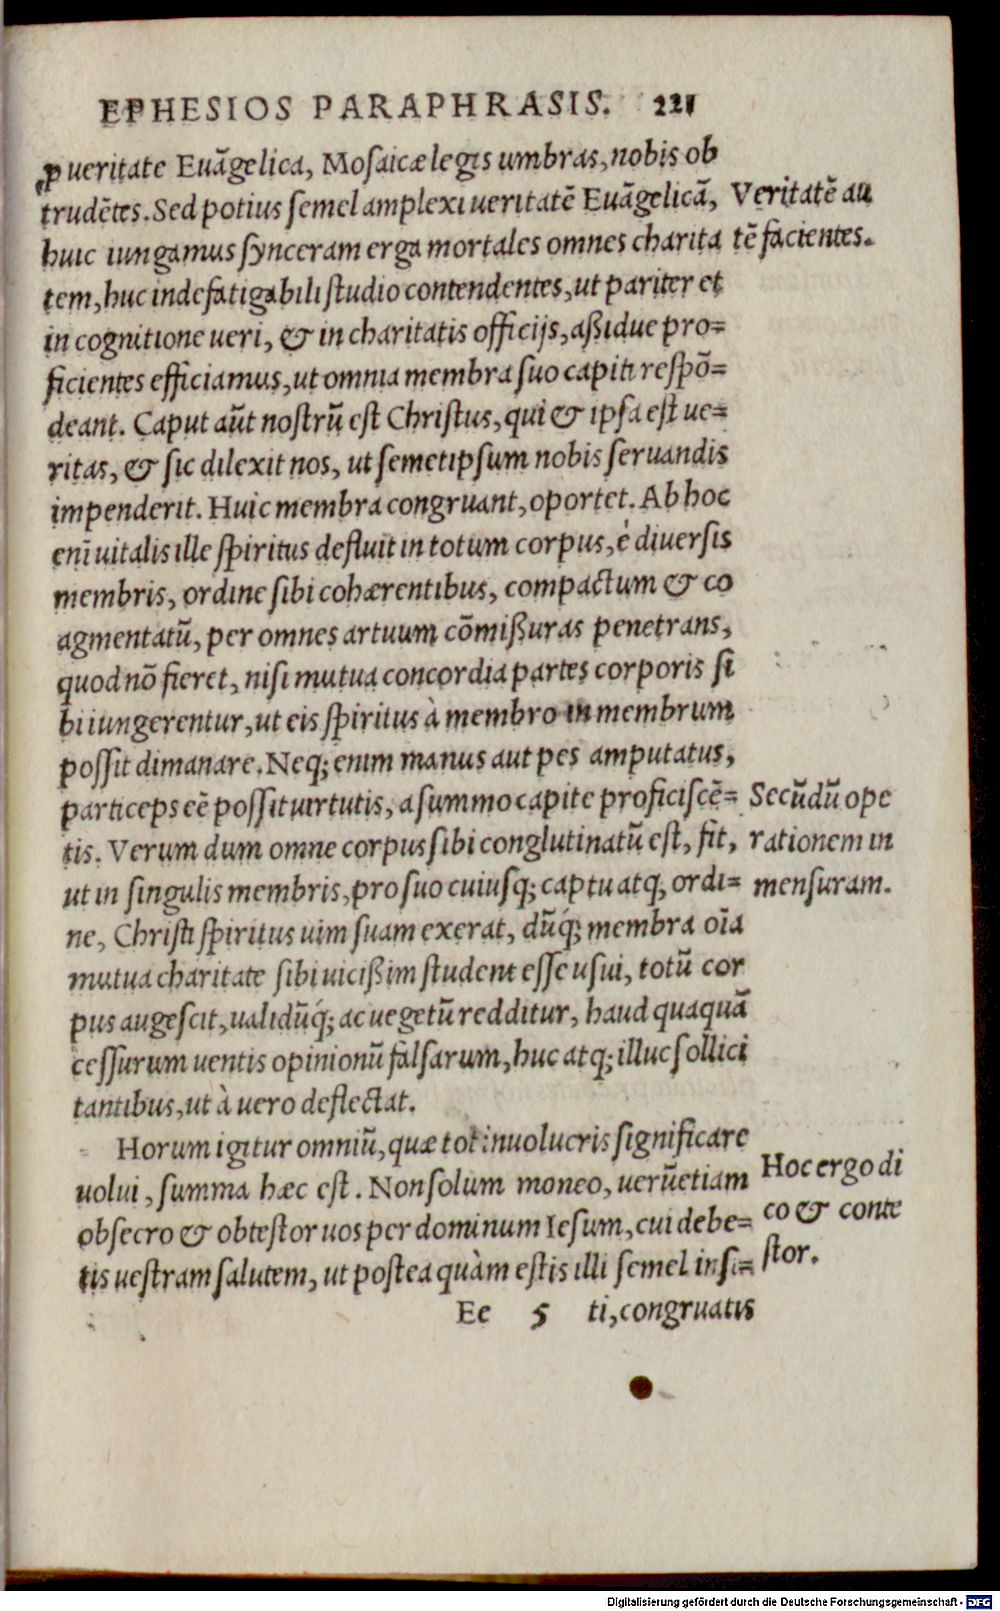 EPHESIOS PARAPHRASIS. 221
ꝓ ueritate Euāgelica, Mosaicæ legis umbras, nobis ob
trudētes. Sed potius semel amplexi ueritatē Euāgelicā,
huic iungamus synceram erga mortales omnes charita
tem, huc indefatigabili studio contendentes, ut pariter et
in cognitione ueri, & in charitatis officijs, aßidue pro=
ficientes efficiamus, ut omnia membra suo capiti respō=
deant. Caput aūt nostrū est Christus, qui & ipsa est ue=
ritas, & sic dilexit nos, ut semetipsum nobis seruandis
impenderit. Huic membra congruant, oportet. Ab hoc
enī uitalis ille spiritus defluit in totum corpus, è diuersis
membris, ordine sibi cohærentibus, compactum & co
agmentatū, per omnes artuum cōmißuras penetrans,
quod nō fieret, nisi mutua concordia partes corporis si
bi iungerentur, ut eis spiritus à membro in membrum
possit dimanare. Neq; enim manus aut pes amputatus,
particeps eē possit uirtutis, a summo capite proficiscē=
tis. Verum dum omne corpus sibi conglutinatū est, fit,
ut in singulis membris, pro suo cuiusq; captu atq, ordi=
ne, Christi spiritus uim suam exerat, dūq́; membra oīa
mutua charitate sibi uicißim student esse usui, totū cor
pus augescit, ualidūq́; ac uegetū redditur, haud quaquā
cessurum uentis opinionū falsarum, huc atq; illuc sollici
tantibus, ut à uero deflectat.
Horum igitur omniū, quæ tot inuolucris significare
uolui, summa hæc est. Non solum moneo, uerūetiam
obsecro & obtestor uos per dominum Iesum, cui debe=
tis uestram salutem, ut postea quàm estis illi semel insi=
Ee 5 ti, congruatis
Veritatē au
tē facientes.
Secūdū ope
rationem in
mensuram.
Hoc ergo di
co & conte
stor.
Digitalisierung gefördert durch die Deutsche Forschungsgemeinschaft - DFG